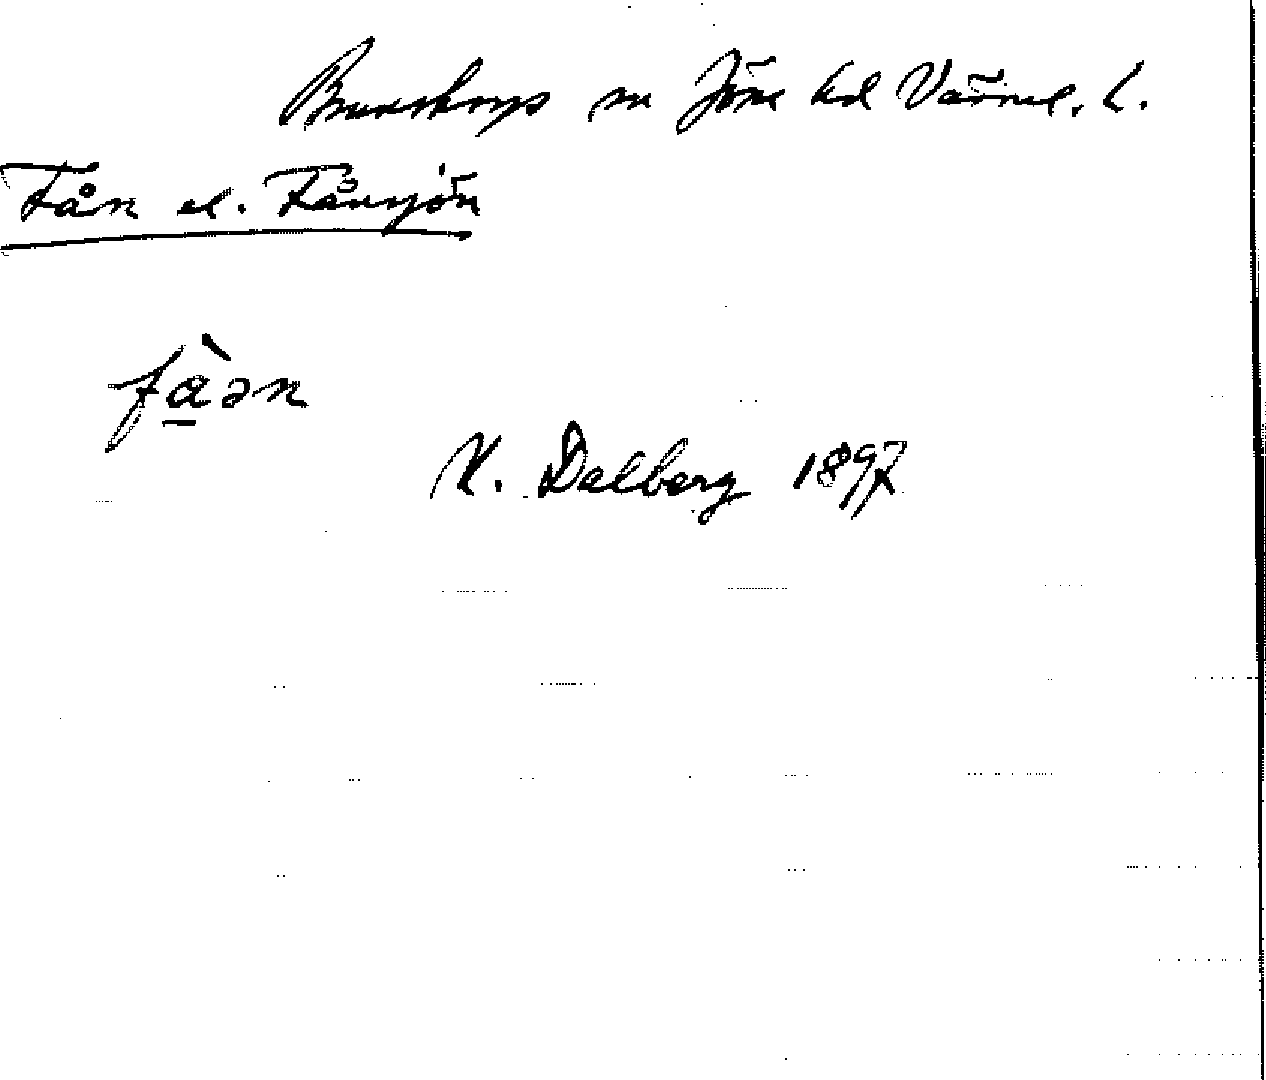 Brunskogs sn Jöse hd Värml. l.
Fån el. Fånsjön
fà̱ən
K. Dalberg 1897